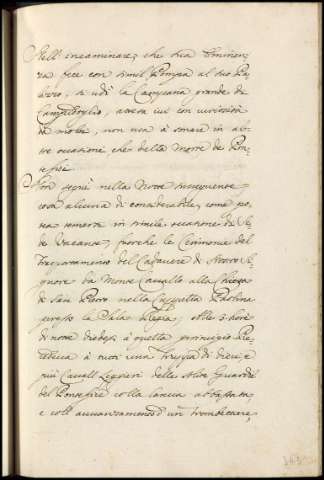 Nell' incaminare, che sua Eminen-
za fece con simil Pompa al suo Pa-
lazzo, si udì la Campana grande di
Campidoglio, attesa ivi con curiosità
da molti, non usa à sonare in al-
tre occasione che della Morte de Pon-
tefici.
Non seguì nella Notte susseguente
cosa alcuna di considerabile, come po-
teva temersi in simile occasione di Se-
de Vacante, fuorche le Cerimonie del
Trasportamento del Cadavere di Nostro Si-
gnore da Monte Cavallo alla Chiesa
di San Pietro nella Cappella Paolina
presso la Sala Regia, Alle 3. hore
di notte diedesi à questa principio Pre-
cedeva à tutti una Truppa di dieci, e
più Cavalli Leggieri della solita Guardia
del Pontefice colla lancia abbassata,
e coll' avvanzamento d'un Trombettiere,